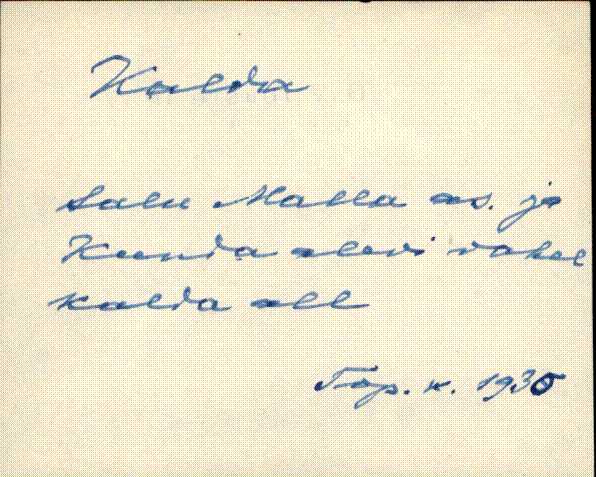 Kalda
salu Malla as. ja
Kunda alevi vahel
kalda all
Top. k. 1935